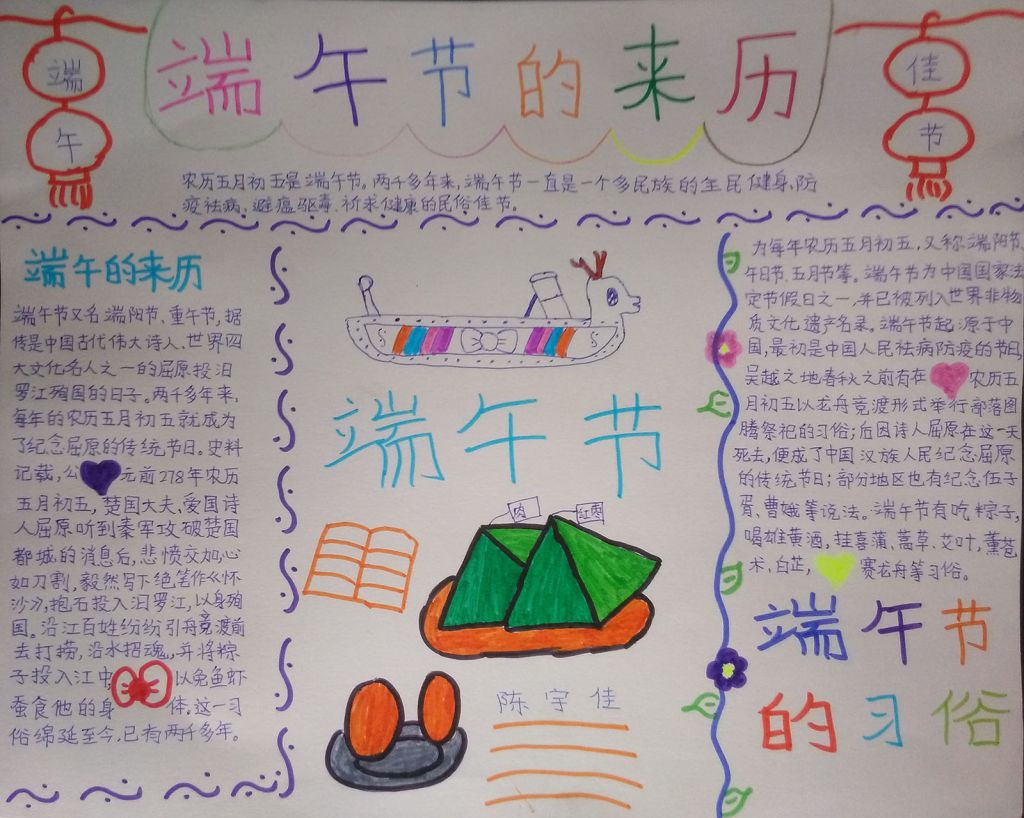 端午节的来历
端
午
佳
节
农历五月初五是端午节。两千多年来,端午节一直是一个多民族的全民健身,防
疫祛病、避瘟驱毒、祈求健康的民俗佳节。
端午的来历
端午节又名端阳节、重午节,据
传是中国古代伟大诗人、世界四
大文化名人之一的屈原投汨
罗江殉国的日子。两千多年来,
每年的农历五月初五就成为
了纪念屈原的传统节日。史料
记载,公元前278年农历
五月初五,楚国大夫、爱国诗
人屈原听到秦军攻破楚国
都城的消息后,悲愤交加,心
如刀割,毅然写下绝笔作《怀
沙》,抱石投入汨罗江,以身殉
国。沿江百姓纷纷引舟竞渡前
去打捞,沿水招魂,并将粽
子投入江中,以免鱼虾
蚕食他的身体。这一习
俗绵延至今,已有两千多年。
端午节
肉
红枣
陈宇佳
为每年农历五月初五,又称端阳节、
午日节、五月节等。端午节为中国国家法
定节假日之一,并已被列入世界非物
质文化遗产名录。端午节起源于中
国,最初是中国人民祛病防疫的节日,
吴越之地春秋之前有在农历五
月初五以龙舟竞渡形式举行部落图
腾祭祀的习俗;后因诗人屈原在这一天
死去,便成了中国汉族人民纪念屈原
的传统节日;部分地区也有纪念伍子
胥、曹娥等说法。端午节有吃粽子,
喝雄黄酒,挂喜蒲、蒿草、艾叶,薰苍
术、白芷,赛龙舟等习俗。
端午节
的习俗